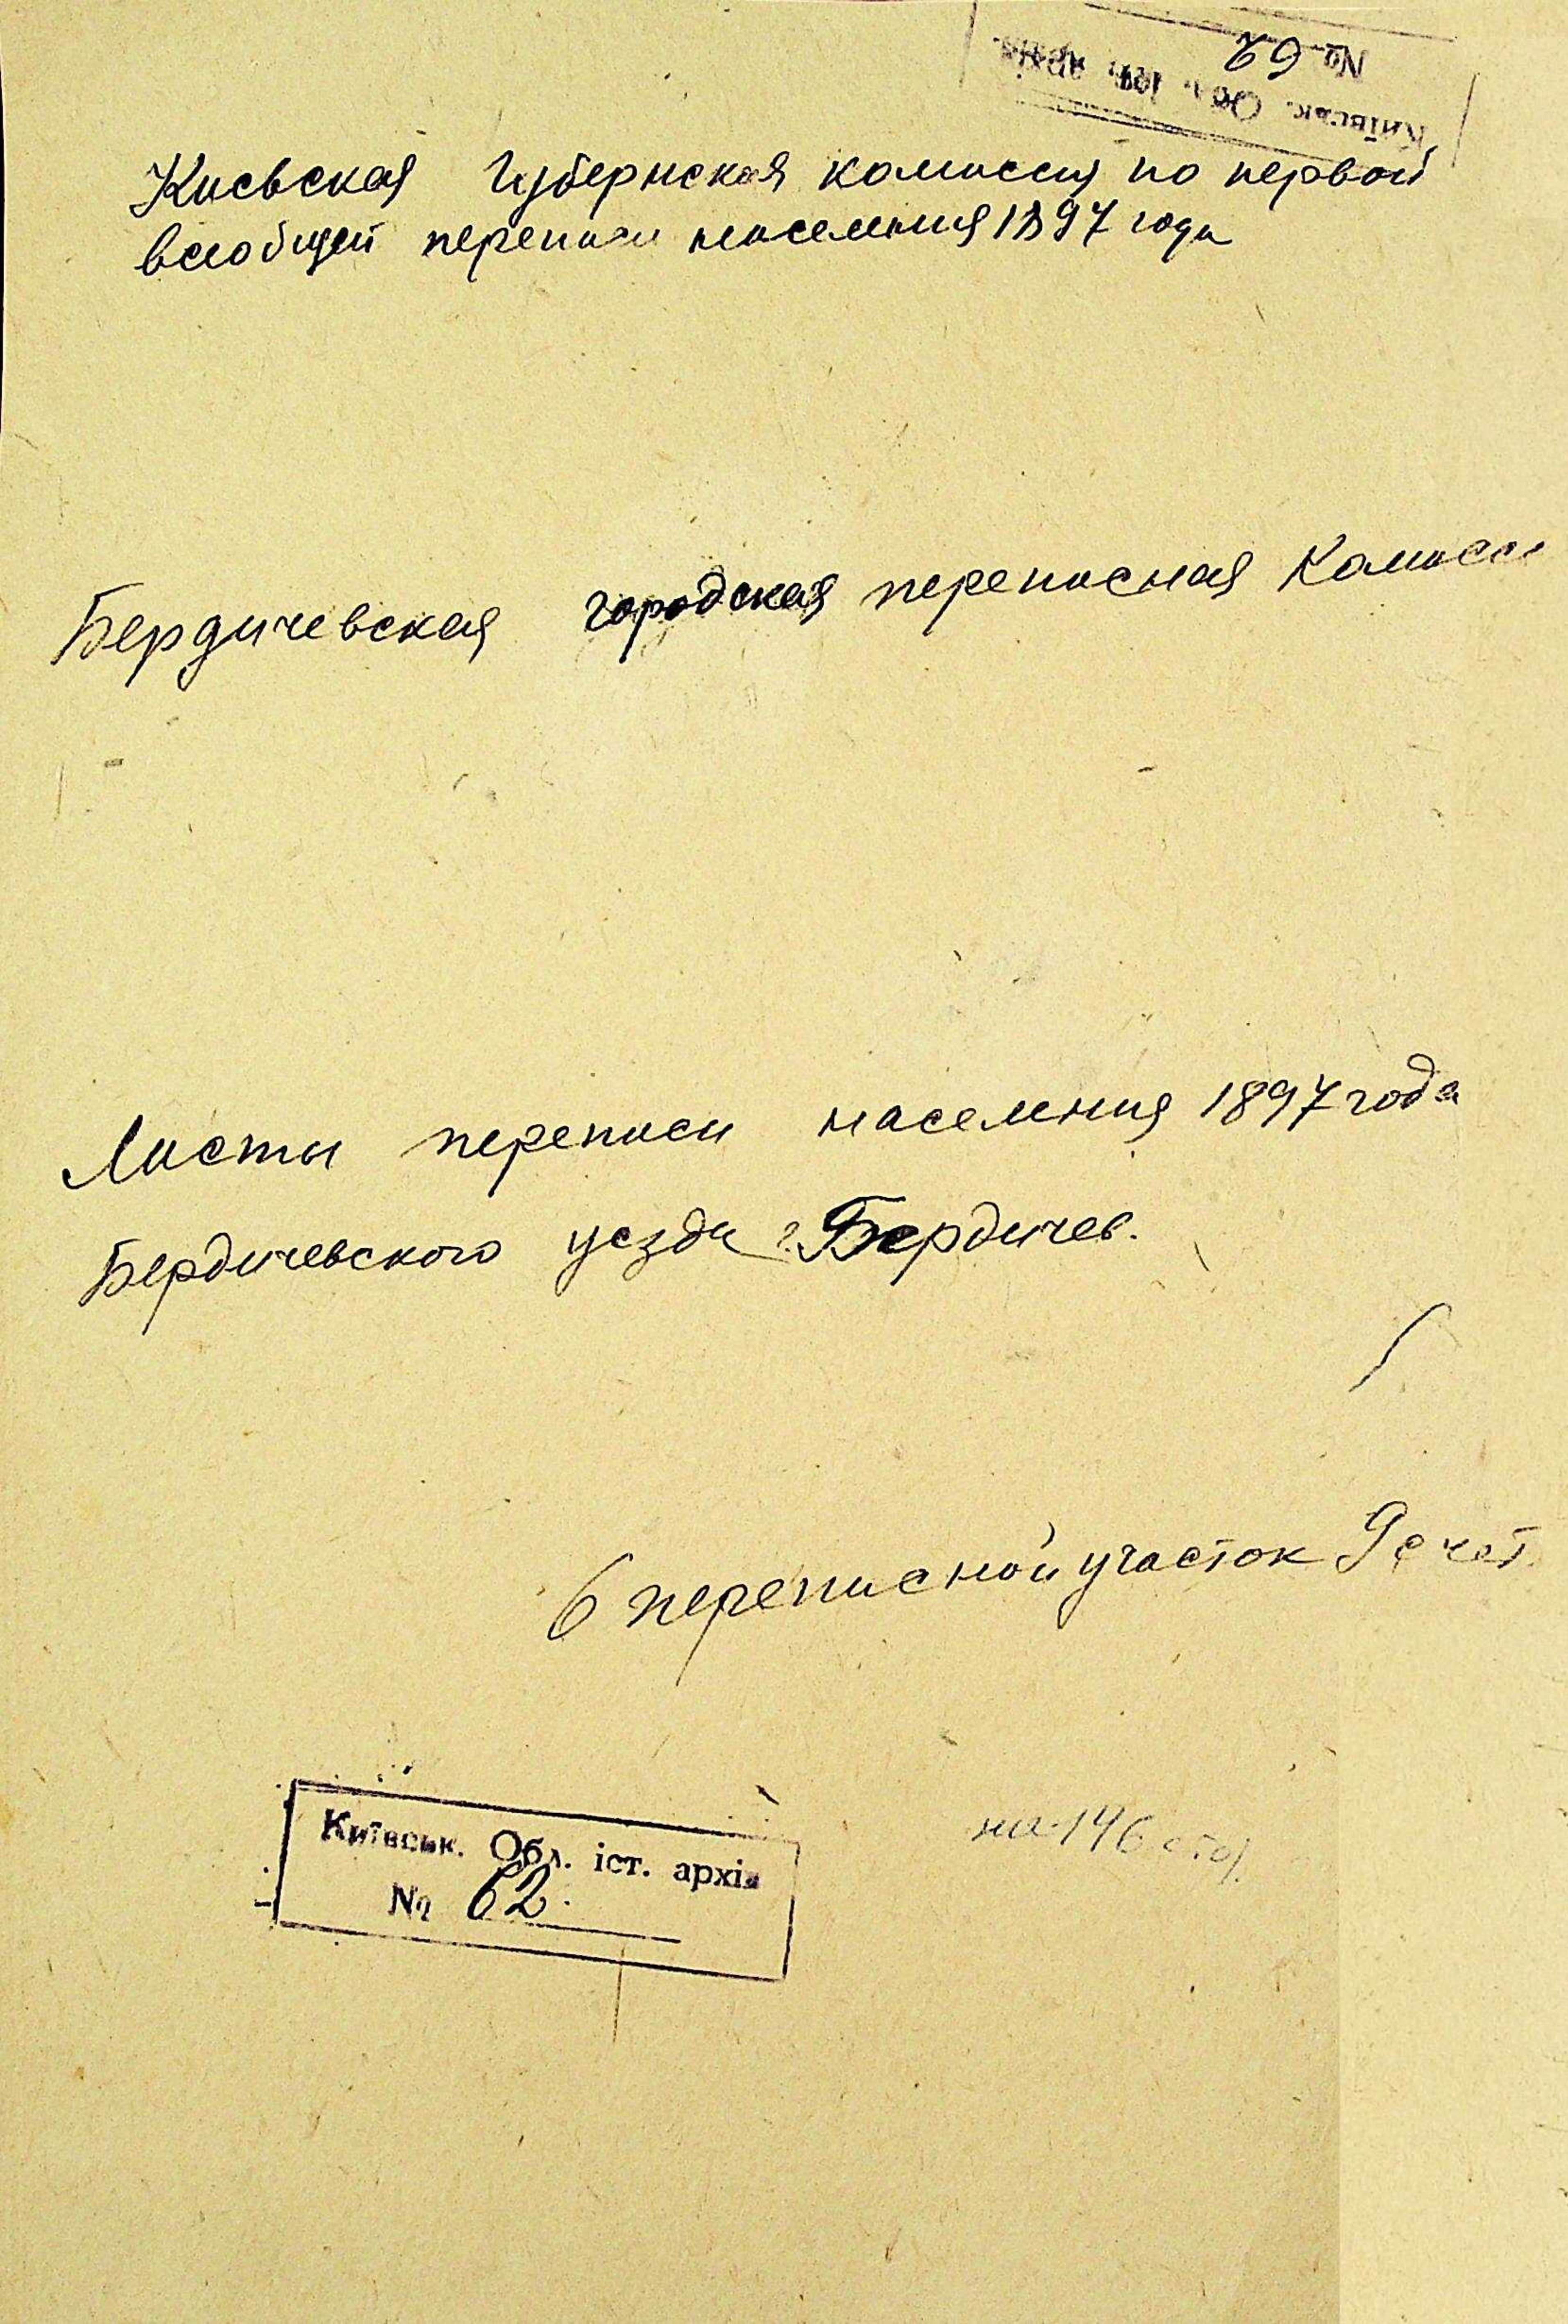 № 62
Київськ. Обл. іст. архів.
Киевская Губернская комиссия по первой
всеобщей переписи населения 1897 года
Бердичевская городская переписная Комисси
Листы переписи населения 1897 года
Бердичевского уезда г. Бердичев.
6 переписной участок 9 счет.
Київськ. Обл. іст. архів
№ 62.
на 146